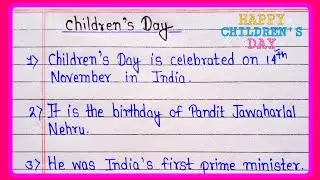 Children's Day
HAPPY
CHILDREN'S
DAY
1) Children's Day is celebrated on 14th
November in India.
2) It is the birthday of Pandit Jawaharlal
Nehru.
3) He was India's first prime minister.